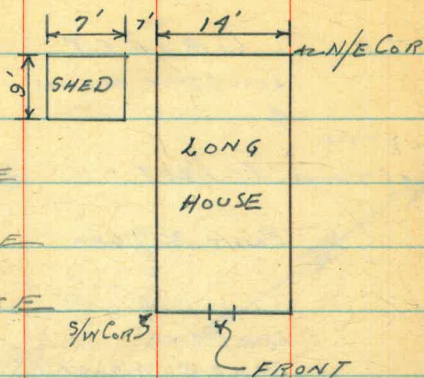 7' 7' 14'
N/E COR
9'
SHED
LONG
HOUSE
E
E
E
S/W COR
FRONT